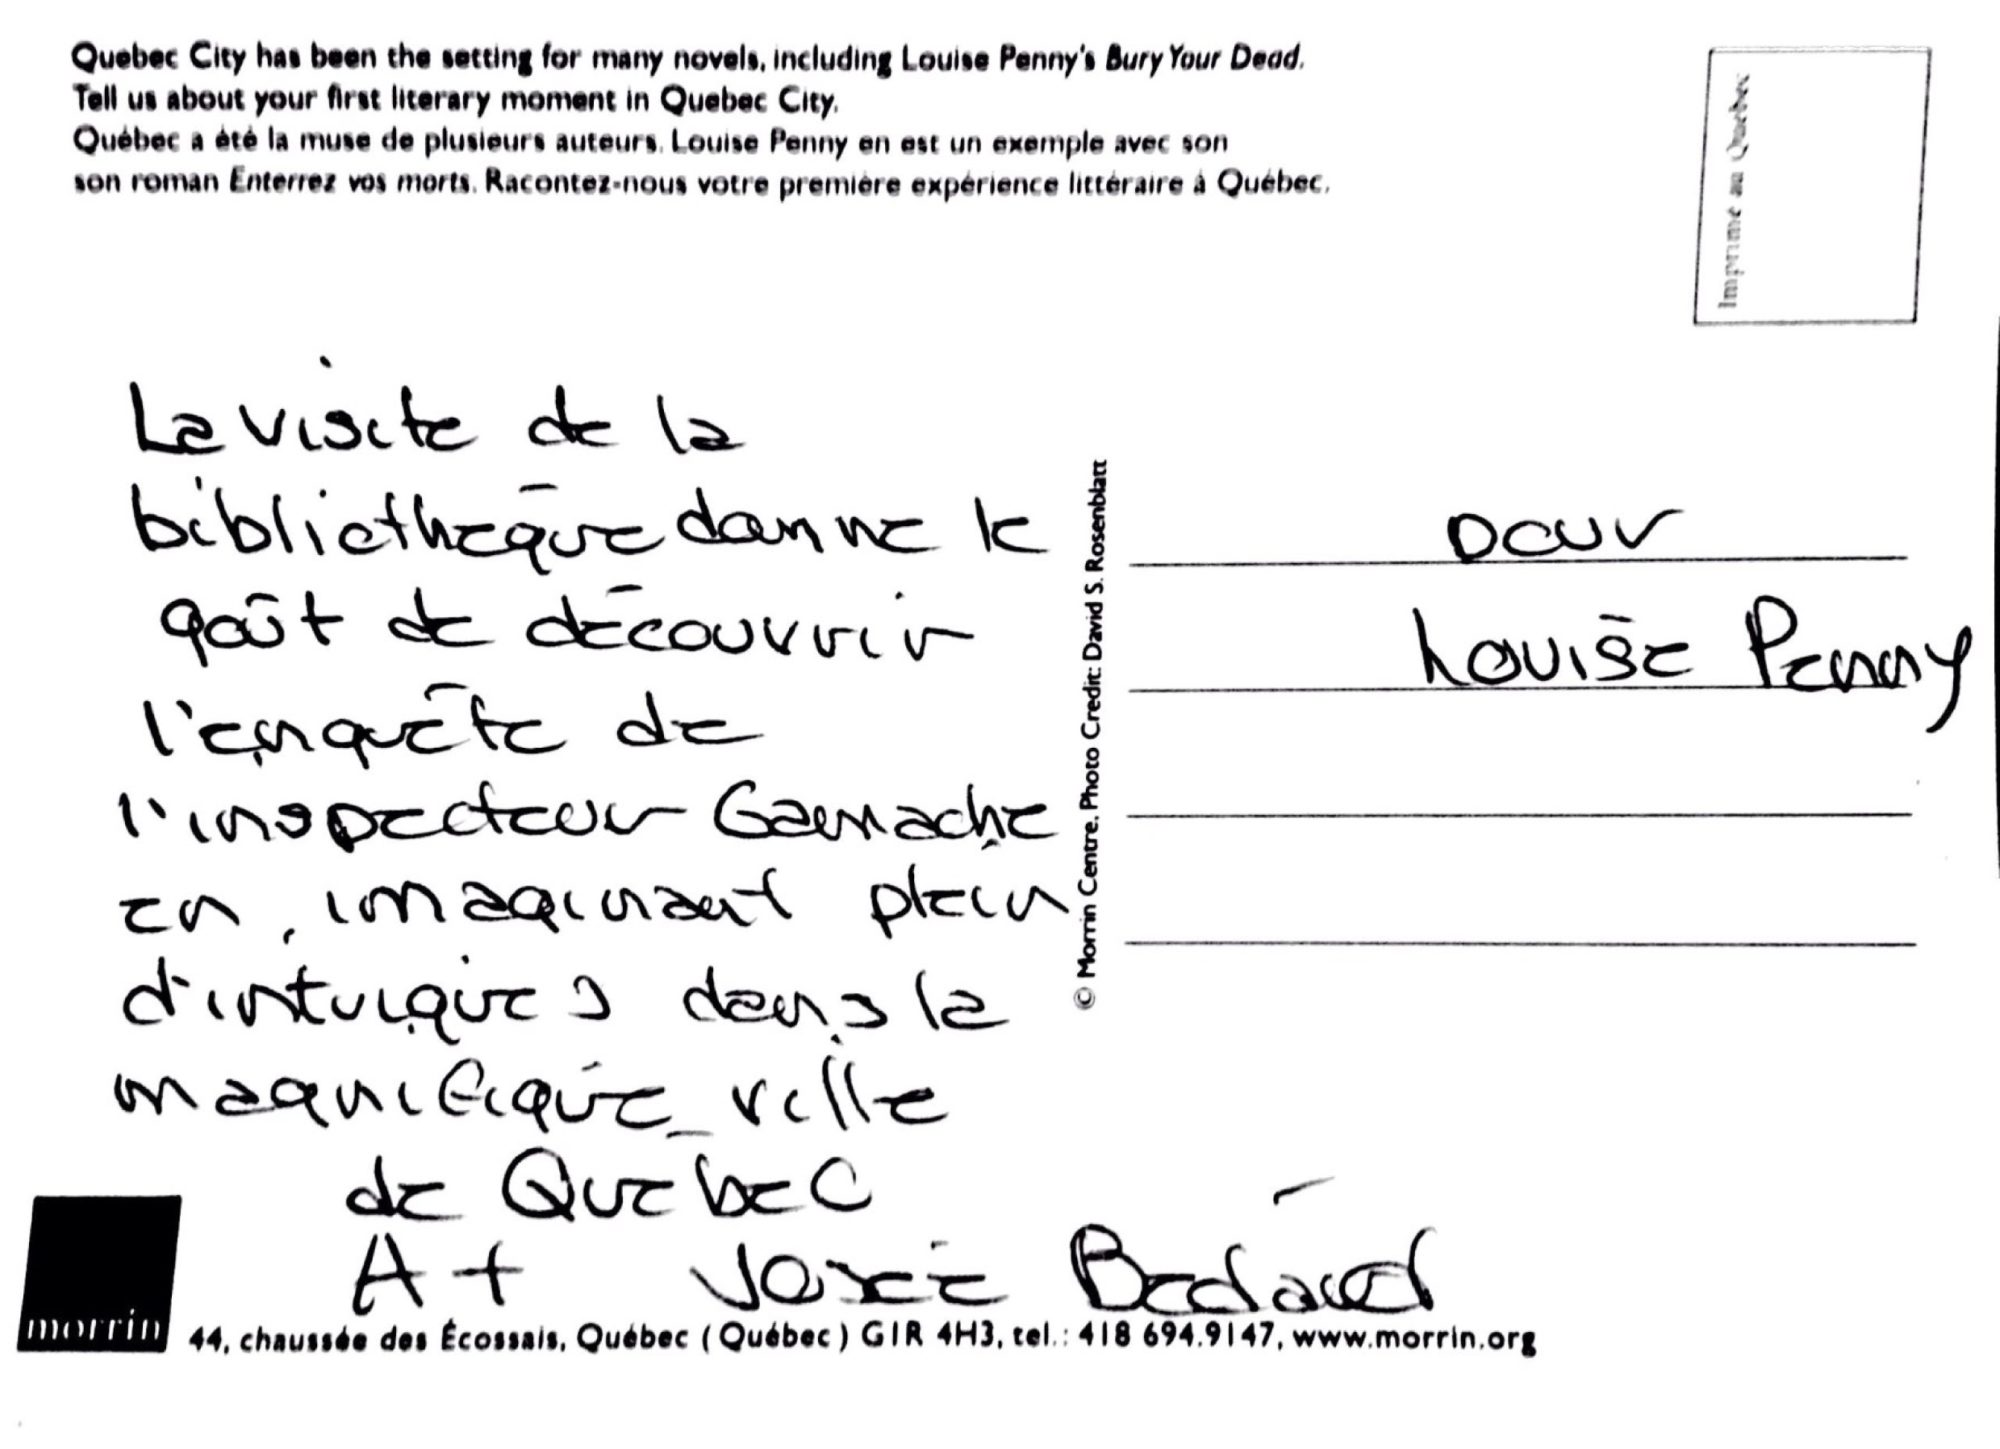 Quebec City has been the setting for many novels, including Louise Penny's Bury Your Dead.
Tell us about your first literary moment in Quebec City.
Québec a été la muse de plusieurs auteurs. Louise Penny en est un exemple avec son
son roman Enterrez vos morts. Racontez-nous votre première expérience littéraire à Québec.
Imprimé au Québec
La visite de la
bibliothèque donne le
goût de découvrir
l'enquête de
l'inspecteur Gamache
en imaginant plein
d'intuigues dans la
magnifique ville
de Québec
A+ Josée Bédard
© Morrin Centre. Photo Credit: David S. Rosenblatt
pour
Louise Penny
morrin
44, chaussée des Écossais, Québec (Québec) G1R 4H3, tel.: 418 694.9147, www.morrin.org